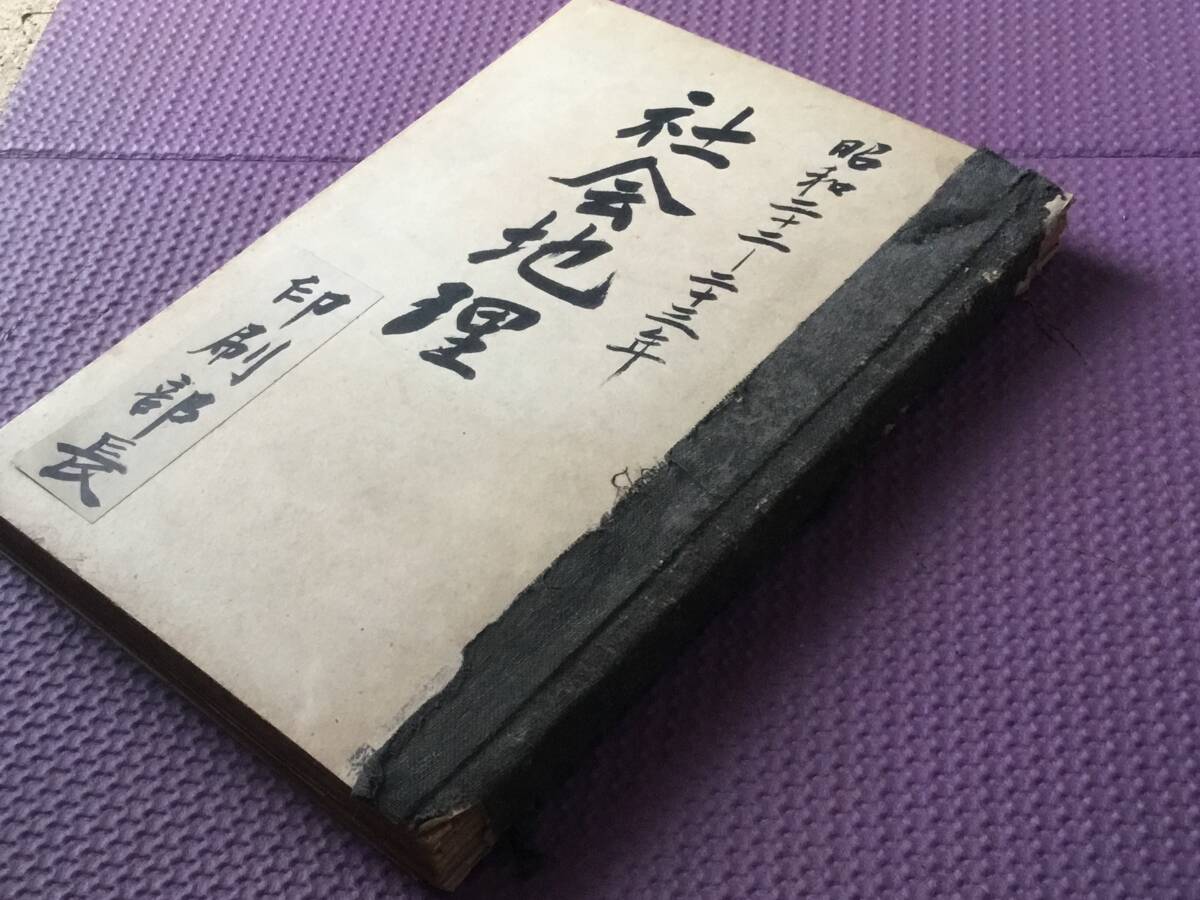 昭和二十二-二十三年
社会地理
印刷部長